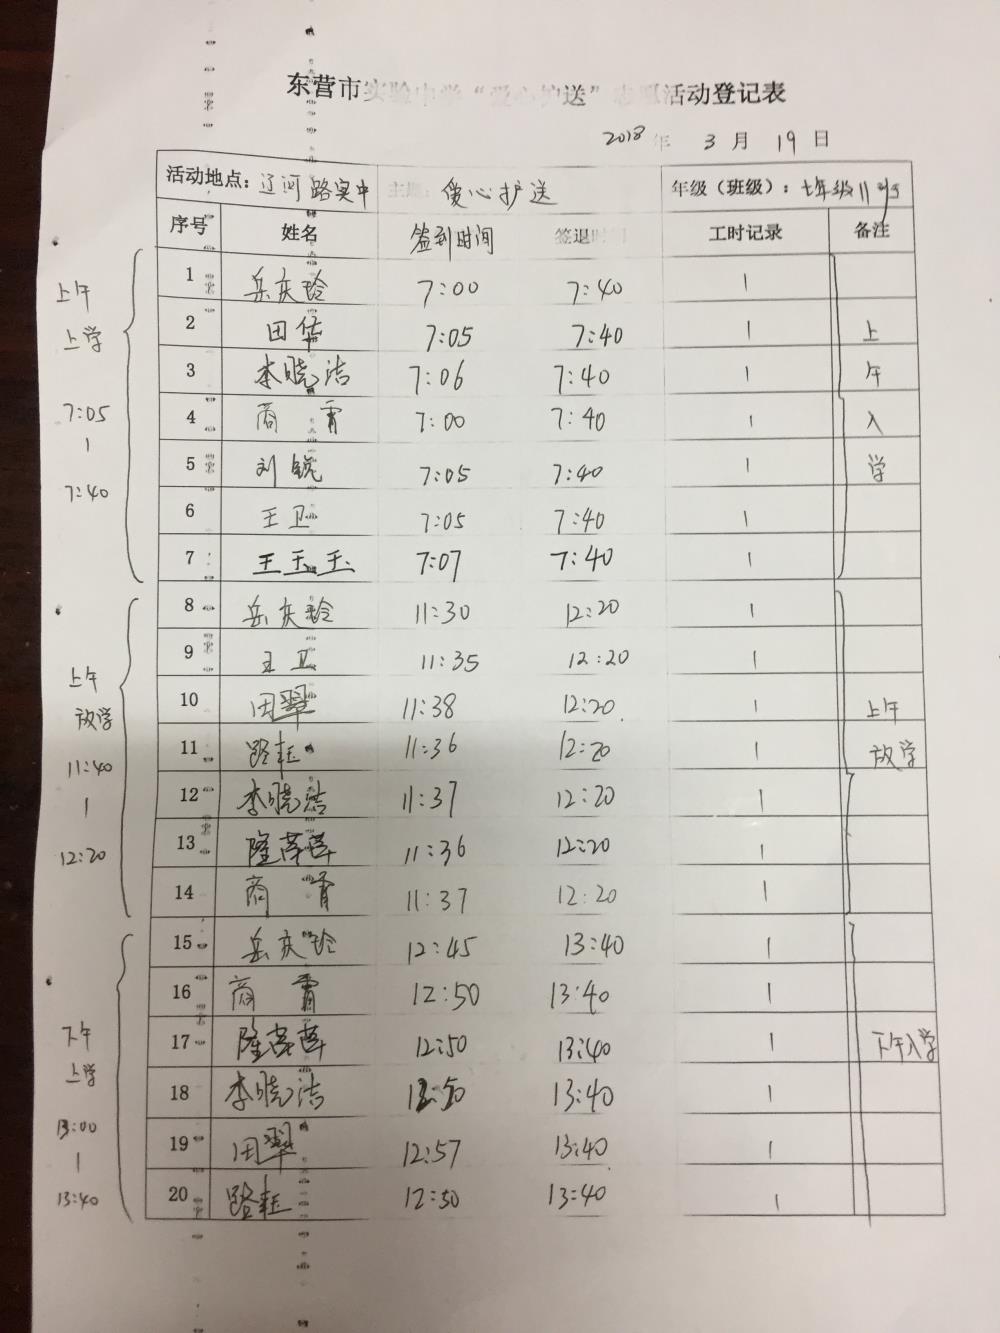 东营市实验中学“爱心护送”志愿活动登记表
2018年 3月 19日
活动地点：辽河路实中 主题：爱心护送 年级（班级）：七年级11班
序号 姓名 签到时间 签退时间 工时记录 备注
1 岳庆玲 7:00 7:40 1
2 田华 7:05 7:40 1 上
3 李晓洁 7:06 7:40 1 午
4 商霄 7:00 7:40 1 入
5 刘锐 7:05 7:40 1 学
6 王卫 7:05 7:40 1
7 王玉玉 7:07 7:40 1
8 岳庆玲 11:30 12:20 1
9 王卫 11:35 12:20 1
10 田翠 11:38 12:20 1 上午
11 路 11:36 12:20 1 放学
12 李晓洁 11:37 12:20 1
13 隆 11:36 12:20 1
14 商霄 11:37 12:20 1
15 岳庆玲 12:45 13:40 1
16 商霄 12:50 13:40 1
17 隆 12:50 13:40 1 下午入学
18 李晓洁 12:50 13:40 1
19 田翠 12:57 13:40 1
20 路 12:50 13:40 1
上午
上学
7:05
|
7:40
上午
放学
11:40
|
12:20
下午
上学
13:00
|
13:40